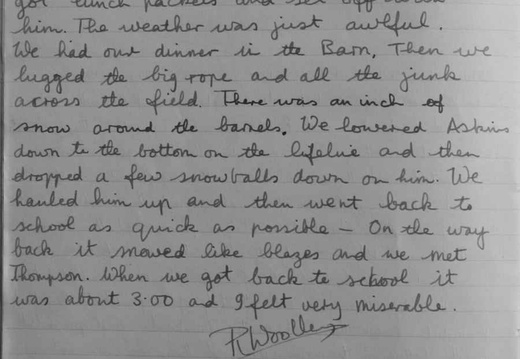 got lunch packets and set off
him. The weather was just awlful.
We had our dinner in the Barn, Then we
lugged the big rope and all the junk
across the field. There was an inch of
snow around the barrels. We lowered Askins
down to the bottom on the lifeline and then
dropped a few snowballs down on him. We
hauled him up and then went back to
school as quick as possible – On the way
back it snowed like blazes and we met
Thompson. When we got back to school it
was about 3.00 and I felt very miserable.
R Woolley